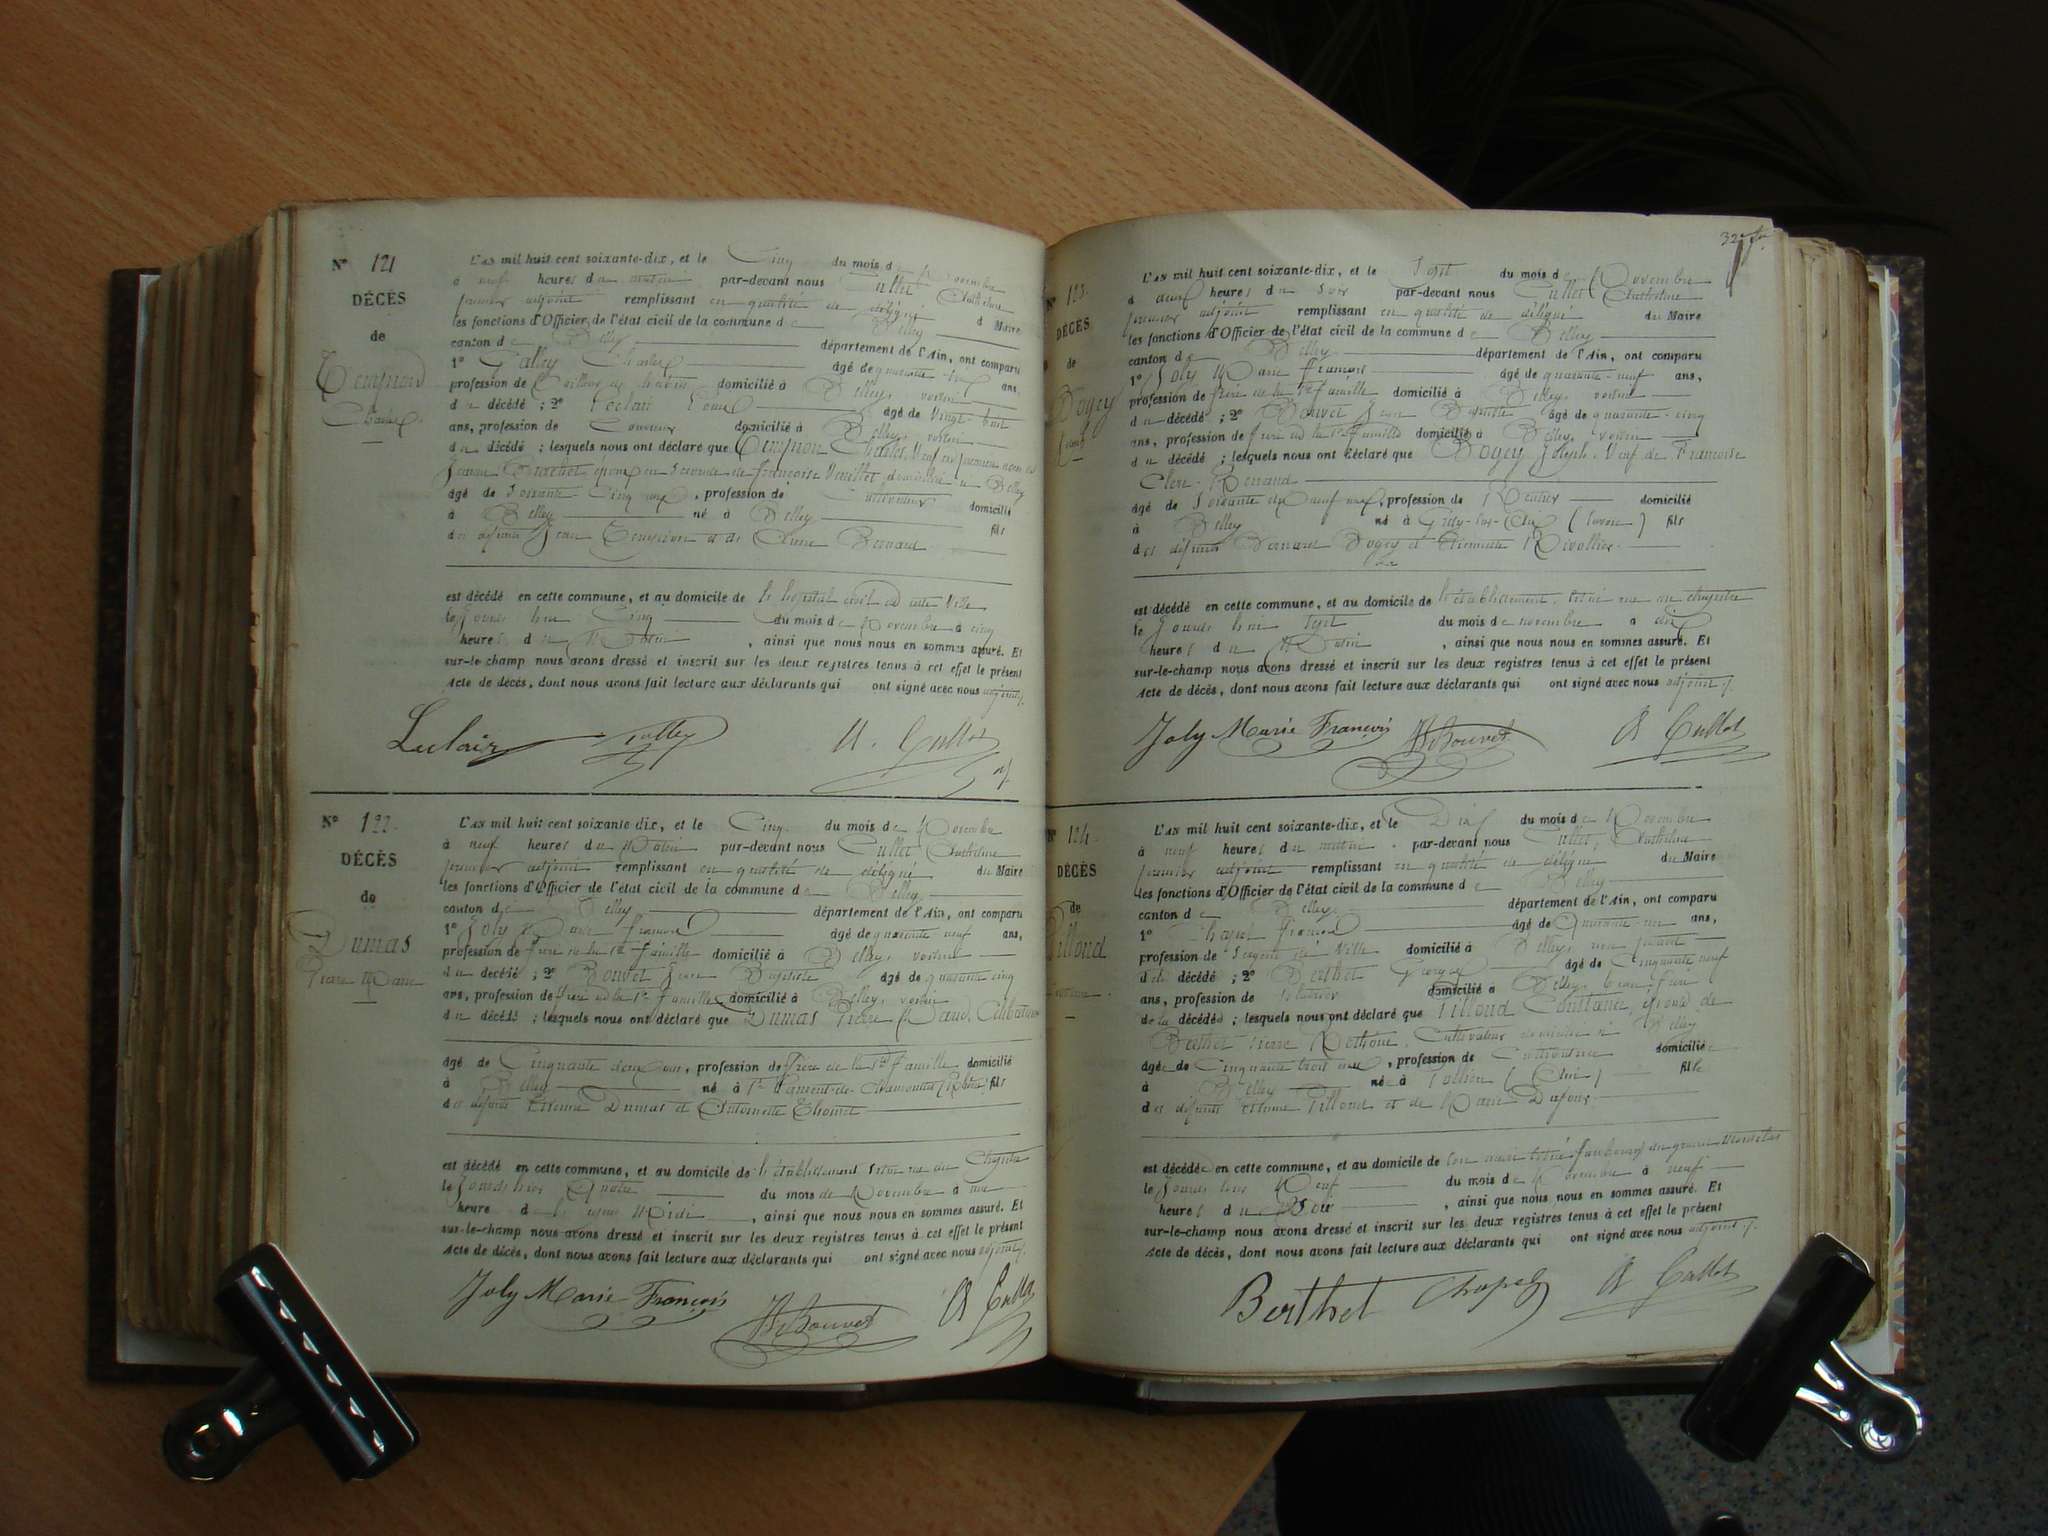 N° 121
DÉCÈS
de
Charles
L'AN mil huit cent soixante-dix, et le Cinq du mois de Novembre
à neuf heures du matin par-devant nous Cullet Anthelme
premier adjoint remplissant en qualité de délégué du Maire
les fonctions d'Officier de l'état civil de la commune de Belley
canton de Belley département de l'Ain, ont comparu
1° Galley Charles âgé de quarante ans,
profession de domicilié à Belley, voisin
du décédé ; 2° Leclair âgé de vingt huit
ans, profession de domicilié à Belley, voisin
du décédé ; lesquels nous ont déclaré que Charles, Veuf en premières noces de
époux en secondes de Françoise domicilié à Belley
âgé de soixante cinq ans, profession de Cultivateur domicilié
à Belley né à Belley fils
des défunts Jean et de Claire Bernard
est décédé en cette commune, et au domicile de l'hôpital civil de cette Ville
le Jour d'hui Cinq du mois de Novembre à cinq
heures du Matin, ainsi que nous nous en sommes assuré. Et
sur-le-champ nous avons dressé et inscrit sur les deux registres tenus à cet effet le présent
Acte de décès, dont nous avons fait lecture aux déclarants qui ont signé avec nous adjoint.
Leclair Galley A. Cullet
N° 122.
DÉCÈS
de
Dumas
Pierre Marie
L'AN mil huit cent soixante-dix, et le Cinq du mois de Novembre
à neuf heures du Matin par-devant nous Cullet Anthelme
premier adjoint remplissant en qualité de délégué du Maire
les fonctions d'Officier de l'état civil de la commune de Belley
canton de Belley département de l'Ain, ont comparu
1° Joly Marie François âgé de quarante neuf ans,
profession de frère de la Ste famille domicilié à Belley, voisin
du décédé ; 2° Bouvet Jean Baptiste âgé de quarante cinq
ans, profession de frère de la Ste Famille domicilié à Belley, voisin
du décédé ; lesquels nous ont déclaré que Dumas Pierre Marie, Célibataire
âgé de Cinquante deux ans, profession de frère de la Ste Famille domicilié
à Belley né à St (Rhône) fils
des défunts Etienne Dumas et Antoinette
est décédé en cette commune, et au domicile de l'établissement, situé rue du Chapitre
le Jour d'hier Quatre du mois de Novembre à une
heure de Midi, ainsi que nous nous en sommes assuré. Et
sur-le-champ nous avons dressé et inscrit sur les deux registres tenus à cet effet le présent
Acte de décès, dont nous avons fait lecture aux déclarants qui ont signé avec nous adjoint.
Joly Marie François Bouvet A Cullet
32
N° 123.
DÉCÈS
de
Bogey
Joseph
L'AN mil huit cent soixante-dix, et le Sept du mois de Novembre
à deux heures du Soir par-devant nous Cullet Anthelme
premier adjoint remplissant en qualité de délégué du Maire
les fonctions d'Officier de l'état civil de la commune de Belley
canton de Belley département de l'Ain, ont comparu
1° Joly Marie François âgé de quarante-neuf ans,
profession de frère de la Ste Famille domicilié à Belley, voisin
du décédé ; 2° Bouvet Jean Baptiste âgé de quarante-cinq
ans, profession de frère de la Ste Famille domicilié à Belley, voisin
du décédé ; lesquels nous ont déclaré que Bogey Joseph, Veuf de Françoise
âgé de Soixante dix neuf ans, profession de Rentier domicilié
à Belley né à Grésy-sur-Aix (Savoie) fils
des défunts Bernard Bogey et Etiennette
est décédé en cette commune, et au domicile de l'établissement, situé rue du chapitre
le Jour d'hui Sept du mois de novembre à dix
heures du Matin, ainsi que nous nous en sommes assuré. Et
sur-le-champ nous avons dressé et inscrit sur les deux registres tenus à cet effet le présent
Acte de décès, dont nous avons fait lecture aux déclarants qui ont signé avec nous adjoint.
Joly Marie François Bouvet A Cullet
N° 124.
DÉCÈS
de
Pilloud
L'AN mil huit cent soixante-dix, et le Dix du mois de Novembre
à neuf heures du matin par-devant nous Cullet, Anthelme
premier adjoint remplissant en qualité de délégué du Maire
les fonctions d'Officier de l'état civil de la commune de Belley
canton de Belley département de l'Ain, ont comparu
1° Chapel François âgé de Quarante un ans,
profession de Sergent de Ville domicilié à Belley, non parent
de la décédée ; 2° Berthet Georges âgé de Cinquante neuf
ans, profession de domicilié à Belley, beau-frère
de la décédée ; lesquels nous ont déclaré que Pilloud Constance, épouse de
Berthet Pierre Cultivateur domicilié à Belley
âgée de Cinquante trois ans, profession de Cultivatrice domiciliée
à Belley née à Pollieu (Ain) fille
des défunts Etienne Pilloud et de Marie Dufour
est décédée en cette commune, et au domicile de son mari situé faubourg du
le Jour d'hier Neuf du mois de Novembre à neuf
heures du Soir, ainsi que nous nous en sommes assuré. Et
sur-le-champ nous avons dressé et inscrit sur les deux registres tenus à cet effet le présent
Acte de décès, dont nous avons fait lecture aux déclarants qui ont signé avec nous adjoint.
Berthet Chapel A Cullet